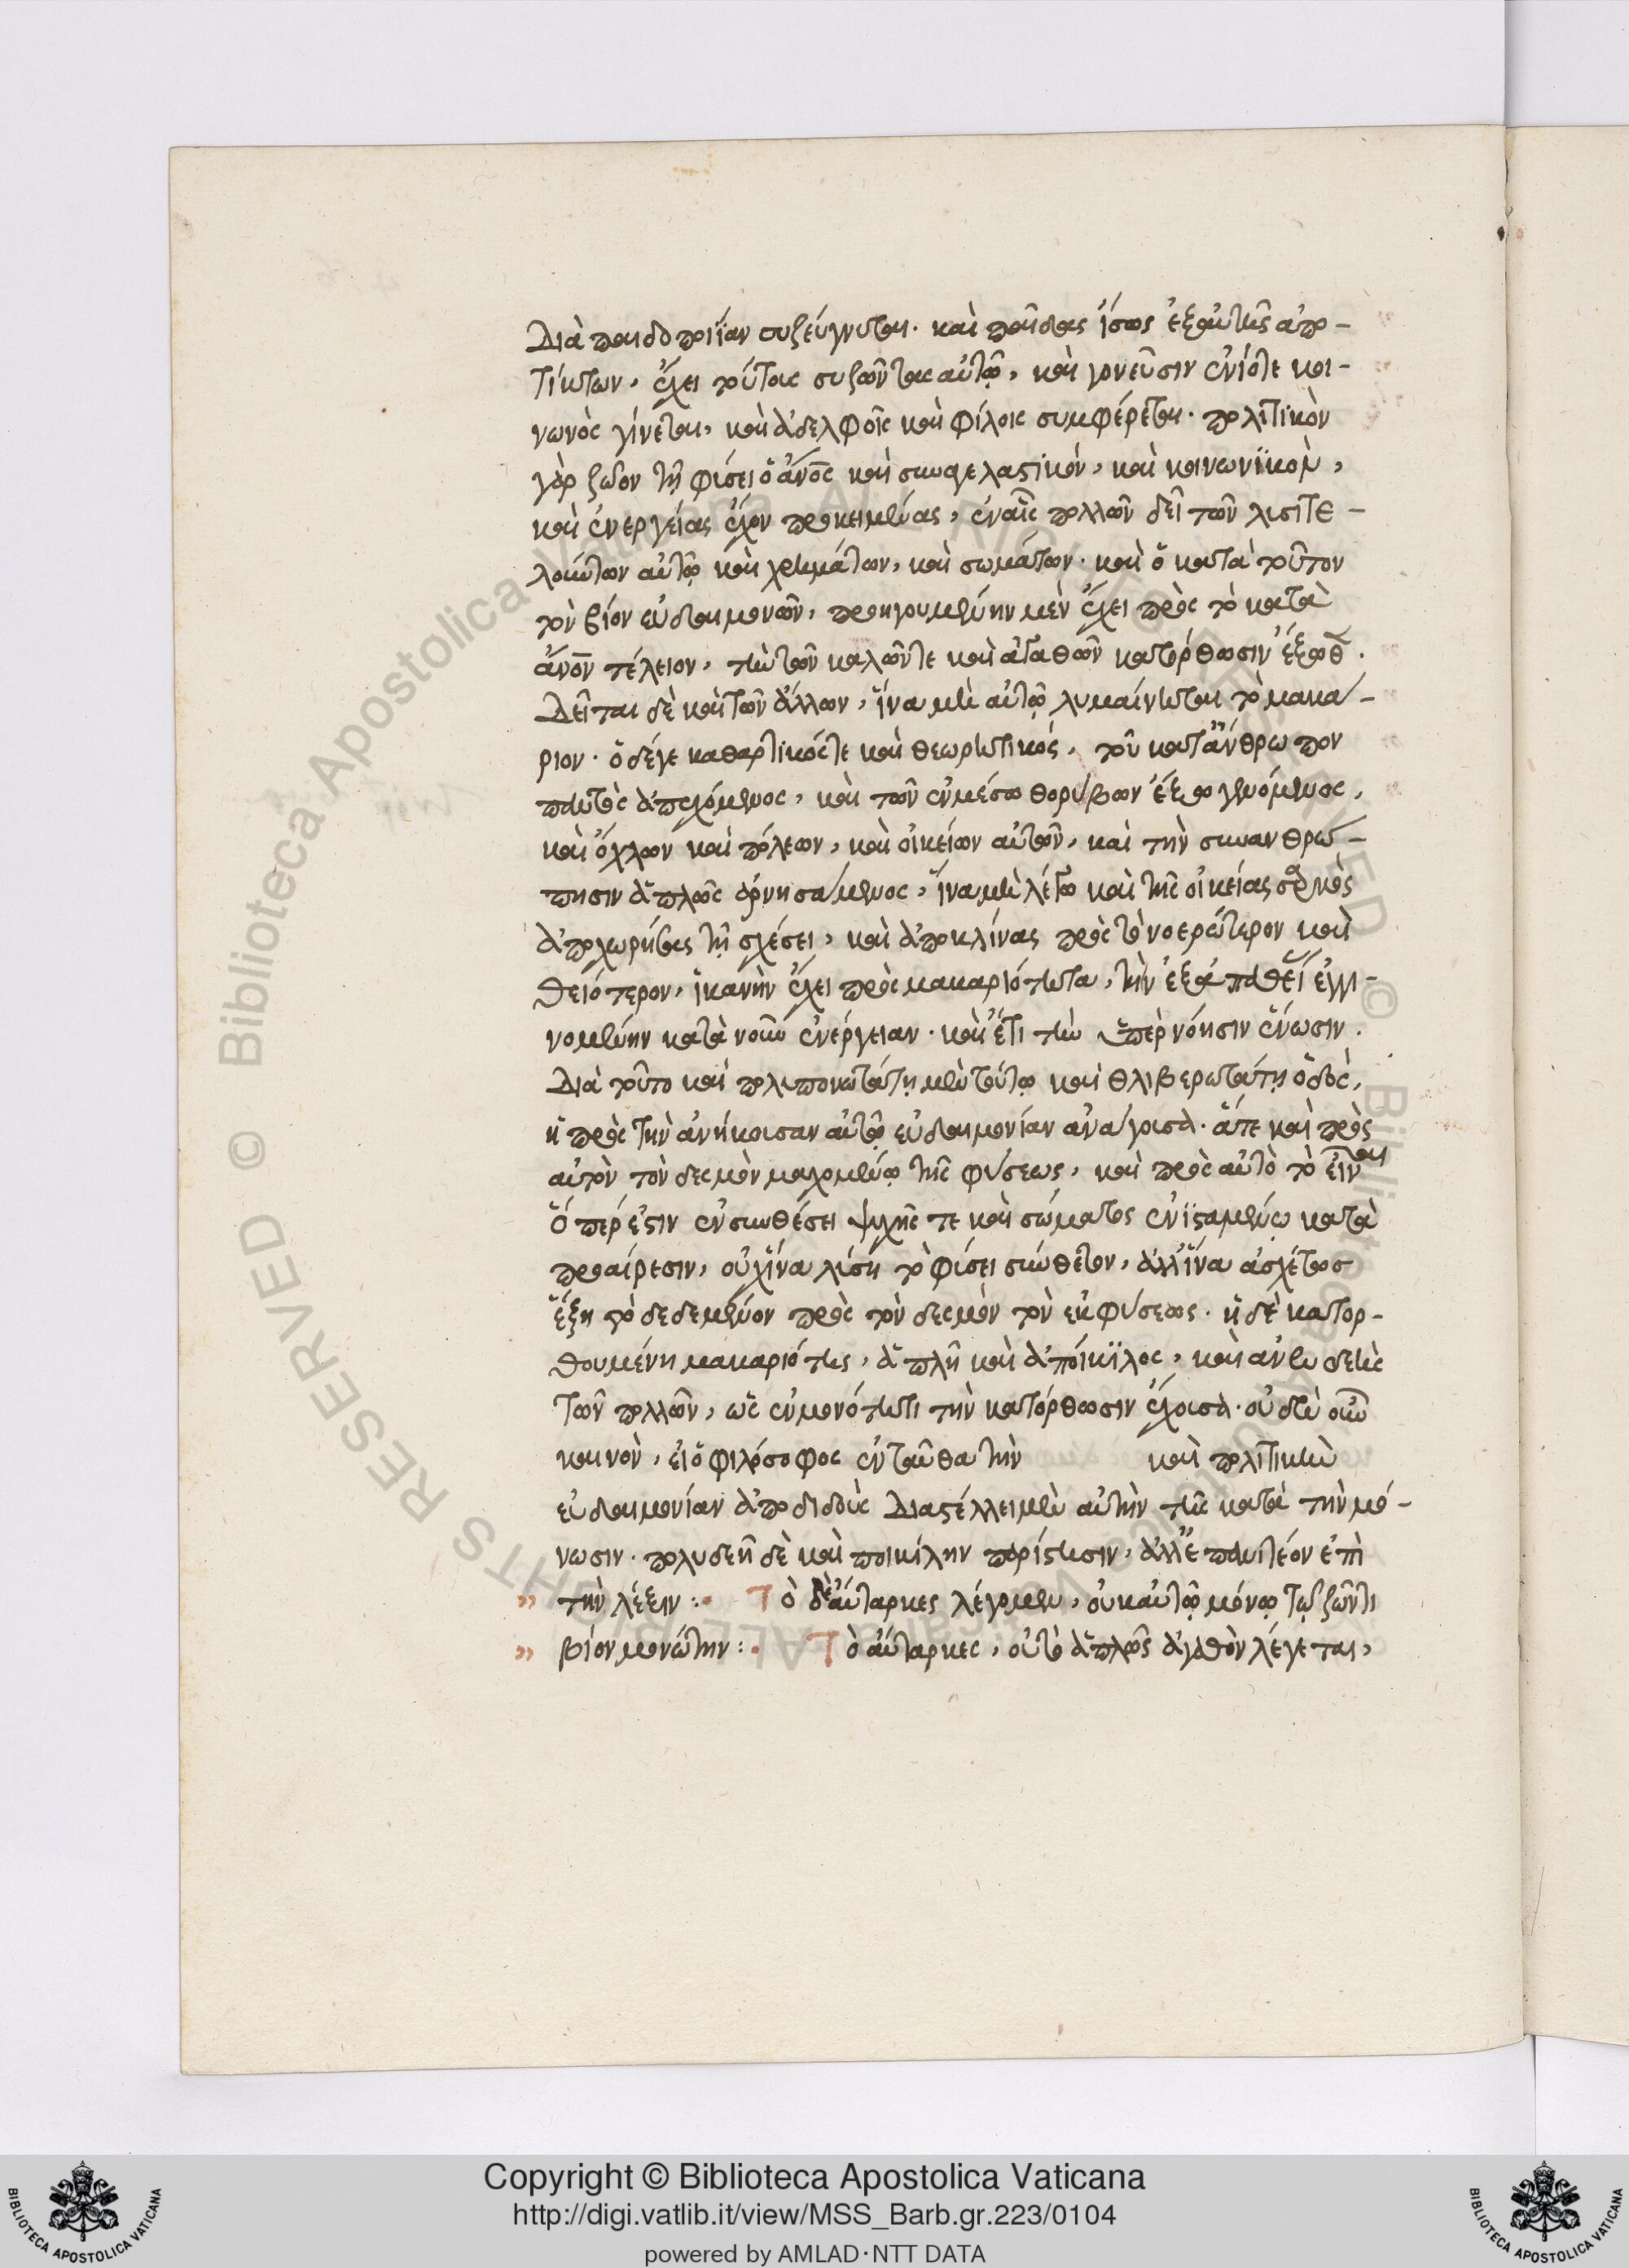 Διὰ παιδοποιΐαν συζεύγνυται· καὶ παῖδας ἴσως ἐξ αὐτῆς ἀπο-
τίκτων, ἔχει τούτοις συζῶντας αὐτῷ, καὶ γονεῦσιν ἐνίοτε κοι-
νωνὸς γίνεται, καὶ ἀδελφοῖς καὶ φίλοις συμφέρεται· πολιτικὸν
γὰρ ζῶον τῇ φύσει ὁ ἄνος καὶ συναγελαστικόν, καὶ κοινωνϊκὸν,
καὶ ἐνεργείας ἔχον προκειμένας, ἐν αἷς πολλῶν δεῖ τῶν λυσιτε-
λούντων αὐτῷ καὶ χρημάτων, καὶ σωμάτων· καὶ ὁ κατὰ τοῦτον
τὸν βίον εὐδαιμονῶν, προηγουμένην μὲν ἔχει πρὸς τὸ κατὰ
ἄνον τέλειον, τὴν τῶν καλῶν τε καὶ ἀγαθῶν κατόρθωσιν
Δεῖται δὲ καὶ τῶν ἄλλων, ἵνα μὴ αὐτῷ λυμαίνηται τὸ μακά-
ριον· ὁ δέγε καθαρτικός τε καὶ θεωρητικός, τοῦ κατ' ἄνθρωπον
παντὸς ἀπεχόμενος, καὶ τῶν ἐν μέσω θορύβων ἔξω γενόμενος,
καὶ ὄχλων καὶ πόλεων, καὶ οἰκείων αὐτῶν, καὶ τὴν συνανθρώ-
πησιν ἁπλῶς ἀρνησάμενος, ἵνα μὴ λέγω καὶ τῆς οἰκείας σαρκὸς
ἀποχωρήσας τῇ σχέσει, καὶ ἀποκλίνας πρὸς τὸ νοερώτερον καὶ
θειότερον, ἱκανὴν ἔχει πρὸς μακαριότητα, τὴν ἐξ ἐγγι-
νομένην κατὰ νοῦν ἐνέργειαν· καὶ ἔτι τὴν ὑπὲρ νόησιν ἕνωσιν.
Διὰ τοῦτο καὶ πολυπονωτάτη μὲν τούτω καὶ θλιβερωτάτη ὁδὸς,
ἡ πρὸς τὴν ἀνήκουσαν αὐτῷ εὐδαιμονίαν ἀνάγουσα· ἅτε καὶ πρὸς
αὐτὸν τὸν δεσμὸν μαχομένῳ τῆς φύσεως, καὶ πρὸς αὐτὸ τὸ εἶναι
Ὅπερ ἐστὶν ἐν συνθέσει ψυχῆς τε καὶ σώματος ἐνϊσταμένῳ κατὰ
προαίρεσιν, οὐχ ἵνα λύσῃ τὸ φύσει σύνθετον, ἀλλ' ἵνα ἀσχέτως
ἕξῃ τὸ δεδεμένον πρὸς τὸν δεσμὸν τὸν ἐκ φύσεως· ἡ δὲ κατορ-
θουμένη μακαριότης, ἁπλῆ καὶ ἀποίκϊλος, καὶ ἀνενδεὴς
τῶν πολλῶν, ὡς ἐν μονότητι τὴν κατόρθωσιν ἔχουσα· οὐδὲν οὖν
καινὸν, εἰ ὁ φιλόσοφος ἐνταῦθα τὴν καὶ πολιτικὴν
εὐδαιμονίαν ἀποδιδοὺς Διαστέλλει μὲν αὐτὴν τῆς κατὰ τὴν μό-
νωσιν· πολυδεῆ δὲ καὶ ποικίλην παρίστησιν, ἀλλ' ἐπανιτέον ἐπὶ
τὴν λέξιν :· Τὸ δὲ αὔταρκες λέγομεν, οὐκ αὐτῷ μόνῳ τῷ ζῶντι
βίον μονώτην :· Τὸ αὔταρκες, οὐ τὸ ἁπλῶς ἀγαθὸν λέγεται,
Copyright © Biblioteca Apostolica Vaticana
http://digi.vatlib.it/view/MSS_Barb.gr.223/0104
powered by AMLAD·NTT DATA